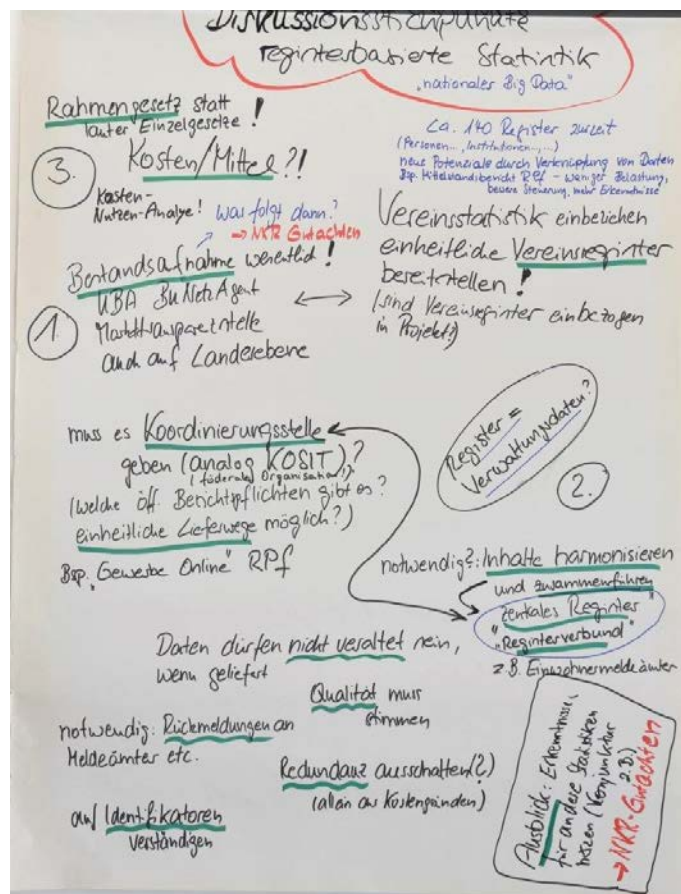 Diskussionsstichpunkte
registerbasierte Statistik
„nationaler Big Data"
Rahmengesetz statt
lauter Einzelgesetze!
3. Kosten/Mittel?!
Kosten-
Nutzen-Analyse!
Was folgt dann?
→ NKR Gutachten
Ca. 140 Register zurzeit
(Personen..., Institutionen..., ...)
neue Potenziale durch Verknüpfung von Daten
Bsp. Mittelstandsbericht RPf - weniger Belastung,
bessere Steuerung, mehr Erkenntnisse
Vereinsstatistik einbeziehen
einheitliche Vereinsregister
bereitstellen!
(sind Vereinsregister einbezogen
in Projekt?)
Bestandsaufnahme wesentlich!
1. UBA BuNetzAgent
auch auf Landesebene
Register =
Verwaltungsdaten?
2.
muss es Koordinierungsstelle
geben (analog KOSIT)?
(föderale Organisation!)
(welche öff. Berichtspflichten gibt es?
einheitliche Lieferwege möglich?)
Bsp. „Gewerbe Online" RPf
notwendig?: Inhalte harmonisieren
und zusammenführen
"zentales Register"
"Registerverbund"
z.B. Einwohnermeldeämter
Daten dürfen nicht veraltet sein,
wenn geliefert
Qualität muss
stimmen
notwendig: Rückmeldungen an
Meldeämter etc.
Redundanz ausschalten(?)
(allein aus Kostengründen)
auf Identifikatoren
verständigen
Ausblick: Erkenntnisse
für andere Statistiken
nutzen (Konjunktur
z.B.)
→ NKR-Gutachten